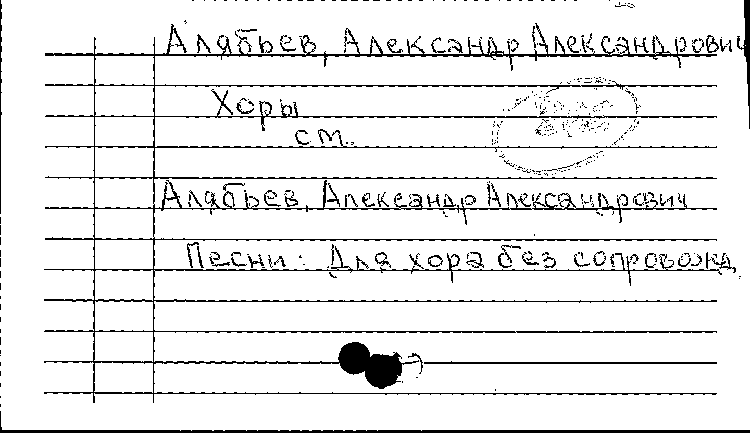 Алябьев, Александр Александрович
Хоры
см.
Алябьев, Александр Александрович
Песни: Для хора без сопровожд.